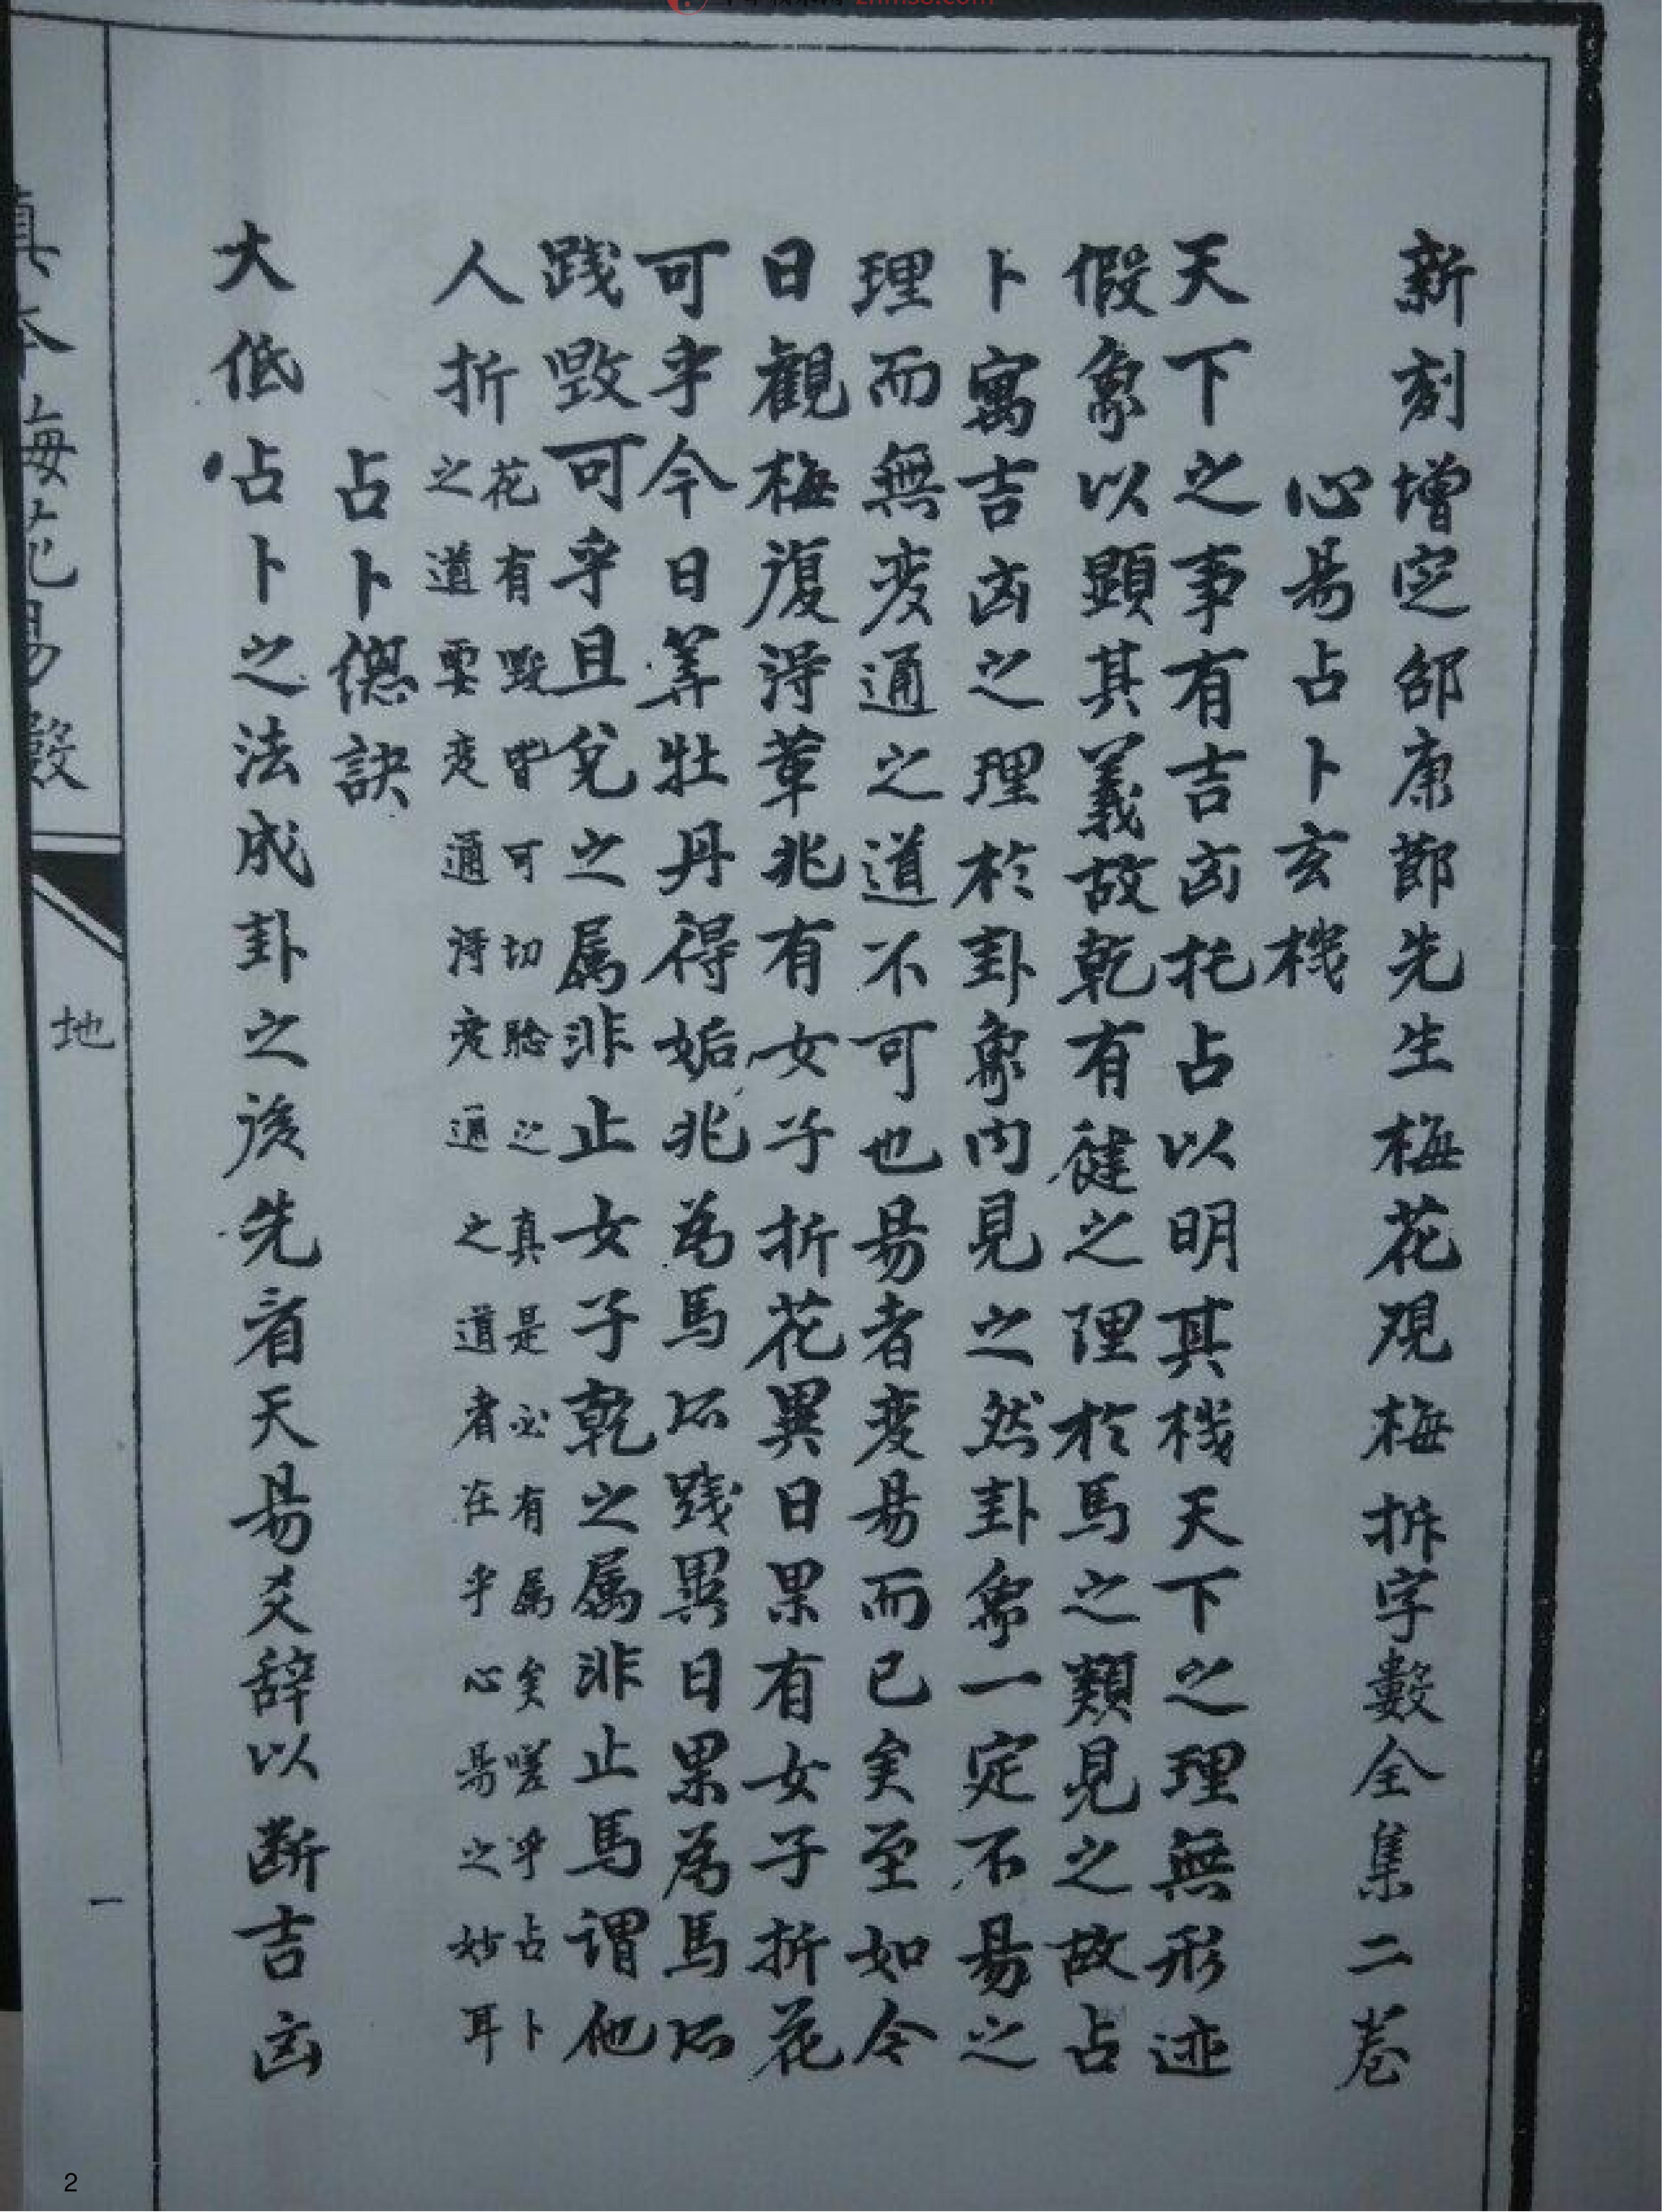 新刻增定邵康節先生梅花观梅拆字數全集二卷
心易占卜玄機
天下之事有吉凶托占以明其機天下之理無形迹
假象以顯其義故乾有健之理於馬之類見之故占
卜寓吉凶之理於卦象内見之然卦象一定不易之
理而無変通之道不可也易者変易而已矣至如今
日觀梅復得革兆有女子折花異日果有女子折花
可乎今日筭牡丹得姤兆為馬所践異日果為馬所
践毀可乎且兌之属非止女子乾之属非止馬謂他
人折花有毀皆可切驗之真是必有属矣嗟乎占卜
之道要変通得変通之道者在乎心易之妙耳
占卜總訣
大低占卜之法成卦之後先看天易爻辞以断吉凶
真本梅花易數
地
一
2